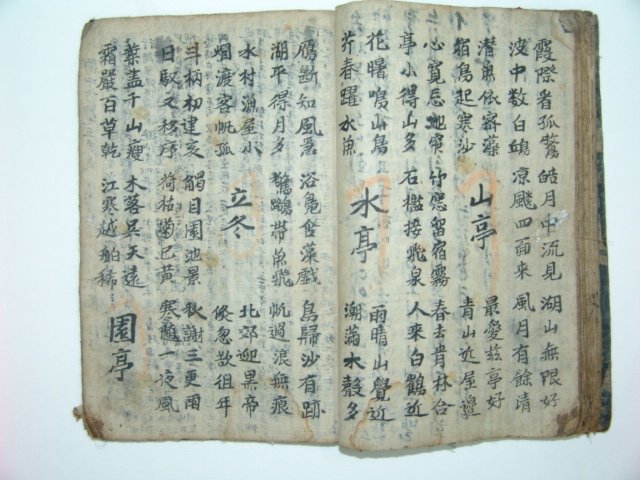 霞際看孤鶩 皓月中流見 湖山無限好
沒中数白鷗 凉颷四面來 風月有餘清
潜魚依密藻 山亭 最愛玆亭好
宿鳥起寒沙 青山近屋邊
心寬忘地窄 竹窓留宿霧 春去靑林合
亭小得山多 石檻接飛泉 人來白鶴近
花曙鳴山鳥 水亭 雨晴山覺近
芹春躍水魚 潮滿水聲多
鴈断知風急 浴鳧含藻戱 鳥歸沙有跡
湖平得月多 驚鷗帶魚飛 帆過浪無痕
水村漁屋小 立冬 北郊迎黒帝
烟渡客帆孤 倐忽欲徂年
斗柄初建亥 觸目園池景 秋謝三更雨
日馭又移序 荷枯菊已黃 寒随一夜風
葉盡千山瘦 木落吴天遠 園亭
霜嚴百草乾 江寒越舶稀